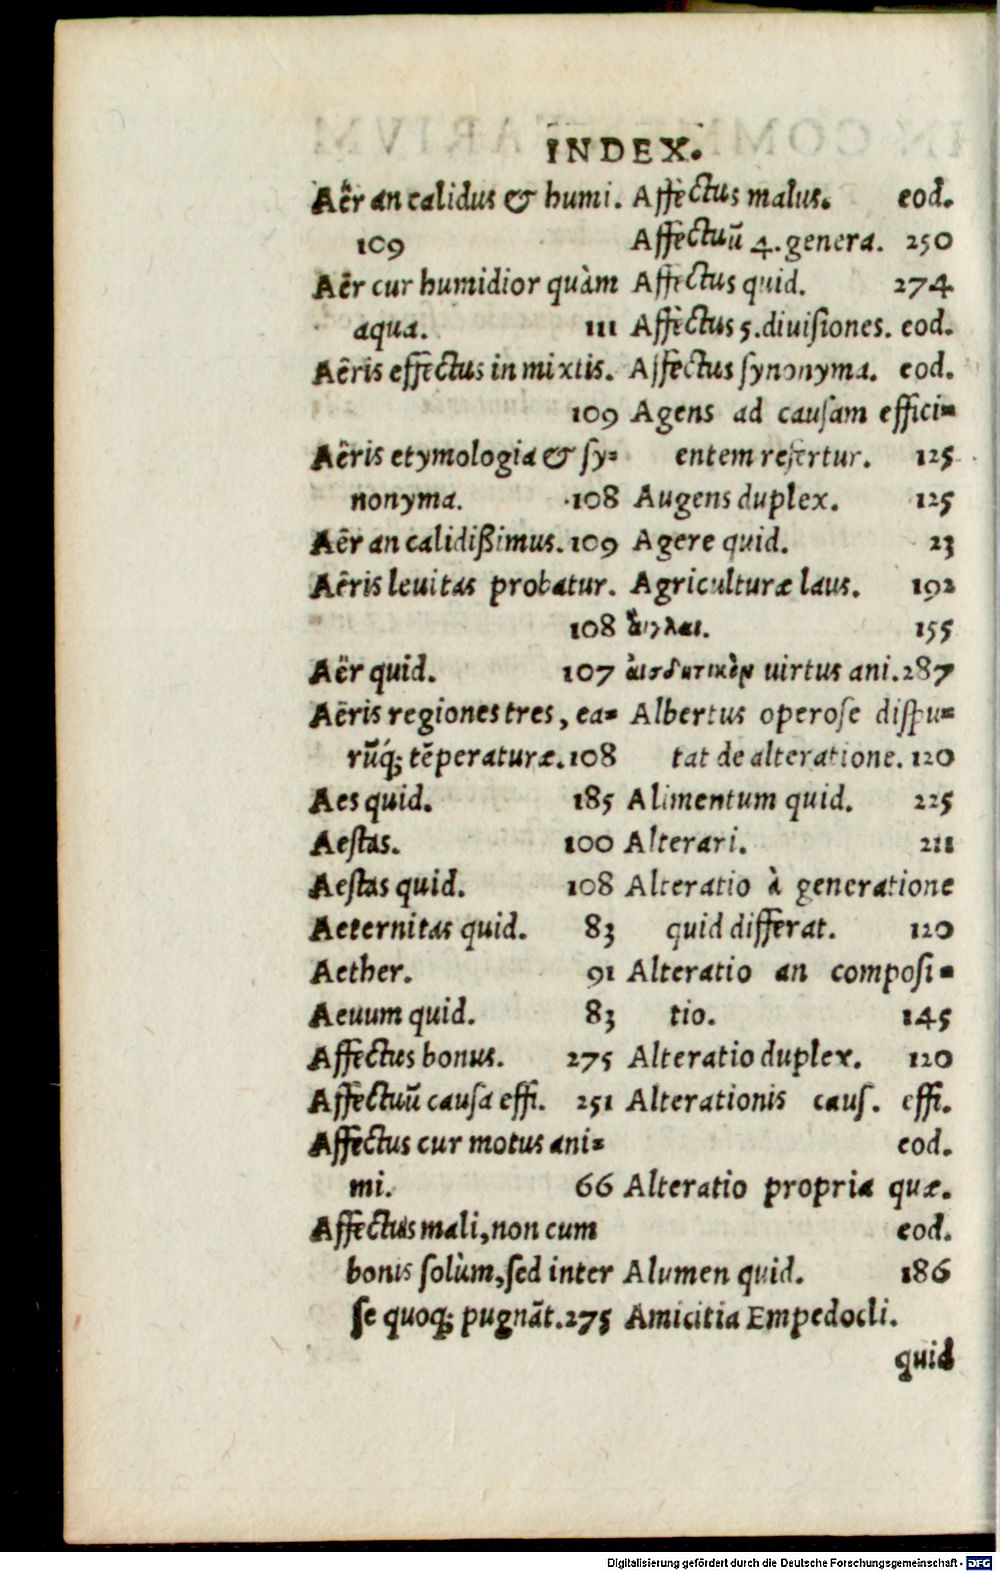 INDEX.
Aër an calidus & humi.
109
Aër cur humidior quàm
aqua. 111
Aëris effectus in mixtis.
109
Aëris etymologia & sy-
nonyma. 108
Aër an calidißimus. 109
Aëris leuitas probatur.
108
Aër quid. 107
Aëris regiones tres, ea-
rūq; tēperaturæ. 108
Aes quid. 185
Aestas. 100
Aestas quid. 108
Aeternitas quid. 83
Aether. 91
Aeuum quid. 83
Affectus bonus. 275
Affectuū causa effi. 251
Affectus cur motus ani-
mi. 66
Affectus mali, non cum
bonis solùm, sed inter
se quoq; pugnāt. 275
Affectus malus. eod.
Affectuū 4. genera. 250
Affectus quid. 274
Affectus 5. diuisiones. eod.
Affectus synonyma. eod.
Agens ad causam effici-
entem refertur. 125
Augens duplex. 125
Agere quid. 23
Agriculturæ laus. 192
155
virtus ani. 287
Albertus operose dispu-
tat de alteratione. 120
Alimentum quid. 225
Alterari. 211
Alteratio à generatione
quid differat. 120
Alteratio an composi-
tio. 145
Alteratio duplex. 120
Alterationis caus. effi.
eod.
Alteratio propria quæ.
eod.
Alumen quid. 186
Amicitia Empedocli.
quid
Digitalisierung gefördert durch die Deutsche Forschungsgemeinschaft - DFG